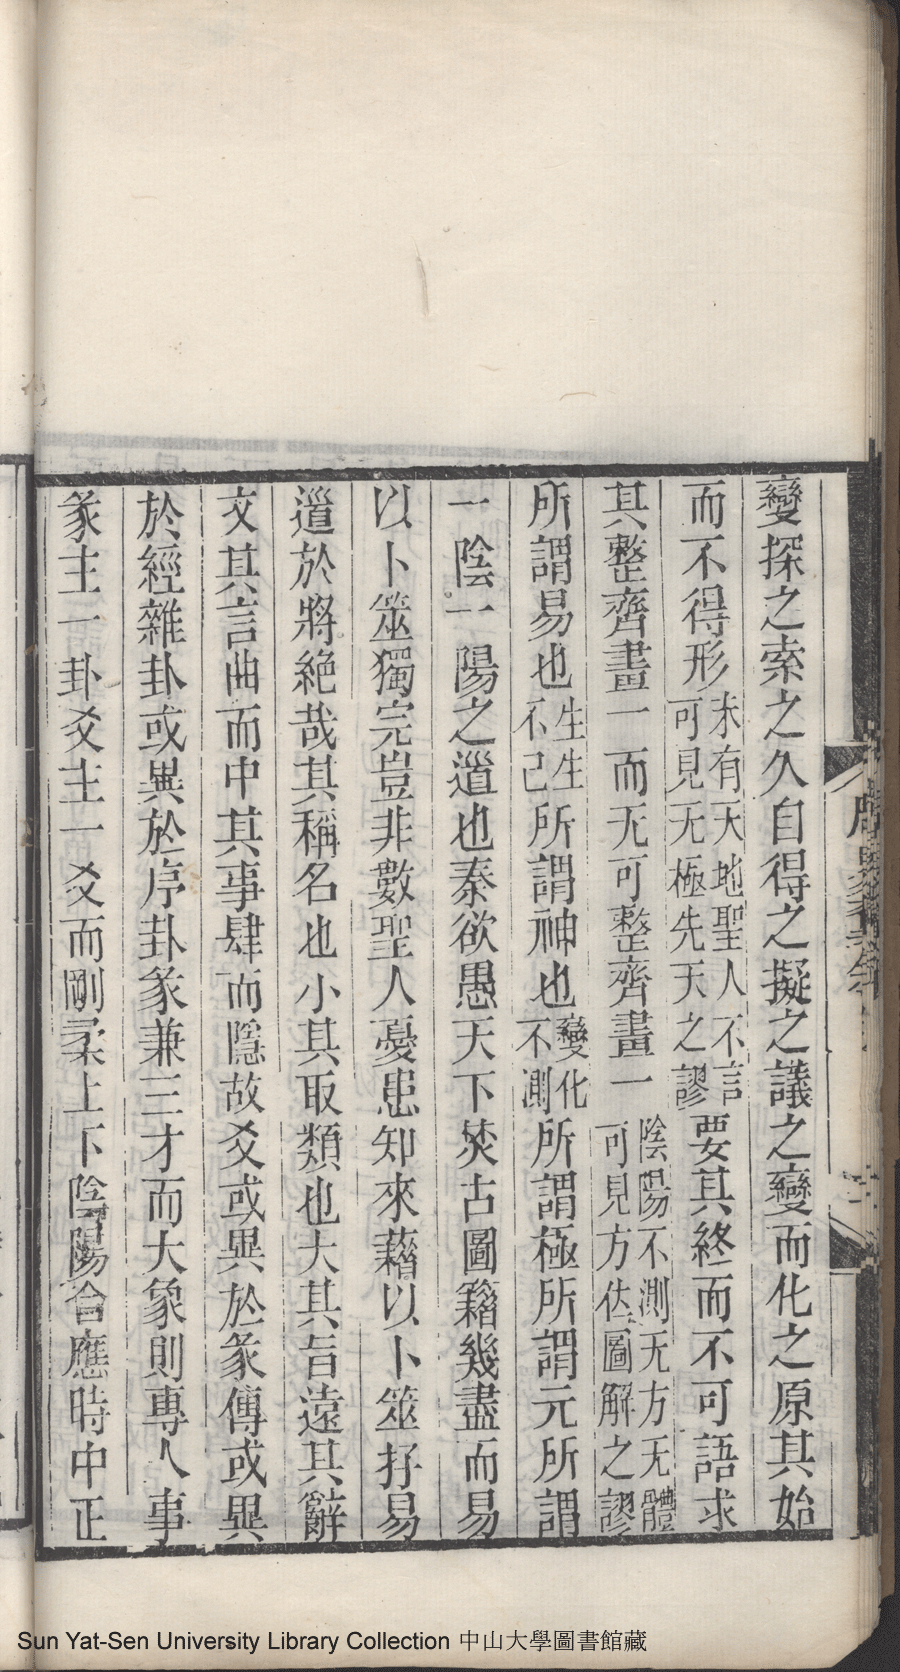 變探之索之久自得之擬之議之變而化之原其始
而不得形未有天地聖人不言可見无極先天之謬要其終而不可語求
其整齊畫一而无可整齊畫一陰陽不測无方无體可見方位圖解之謬
所謂易也生生不已所謂神也變化不測所謂極所謂元所謂
一陰一陽之道也秦欲愚天下焚古圖籍幾盡而易
以卜筮獨完豈非數聖人憂患知來藉以卜筮抒易
道於將絕哉其稱名也小其取類也大其旨遠其辭
文其言曲而中其事肆而隱故爻或異於彖傳或異
於經雜卦或異於序卦彖兼三才而大象則專人事
彖主一卦爻主一爻而剛柔上下陰陽合應時中正
Sun Yat-Sen University Library Collection 中山大學圖書館藏